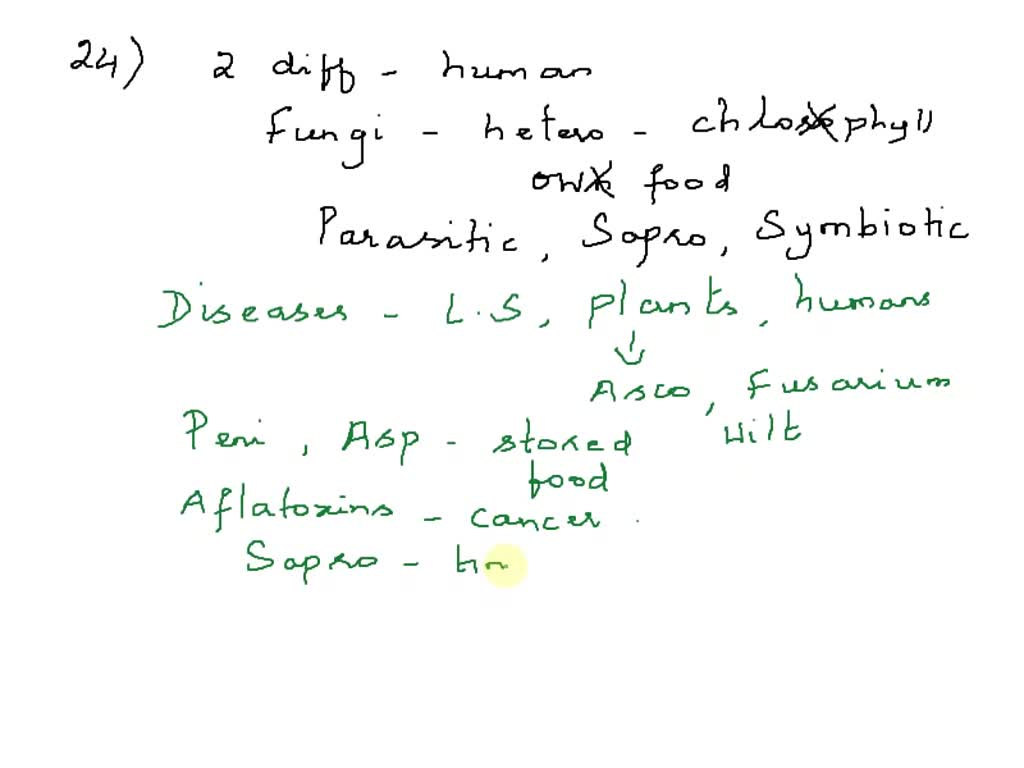 24) 2 diff - human
Fungi - hetero - chlorophyll
own food
Parasitic, Sapro, Symbiotic
Diseases - L.S, plants, humans
↓
Asco, Fusarium
Peni, Asp - stored wilt
food
Aflatoxins - cancer.
Sapro -